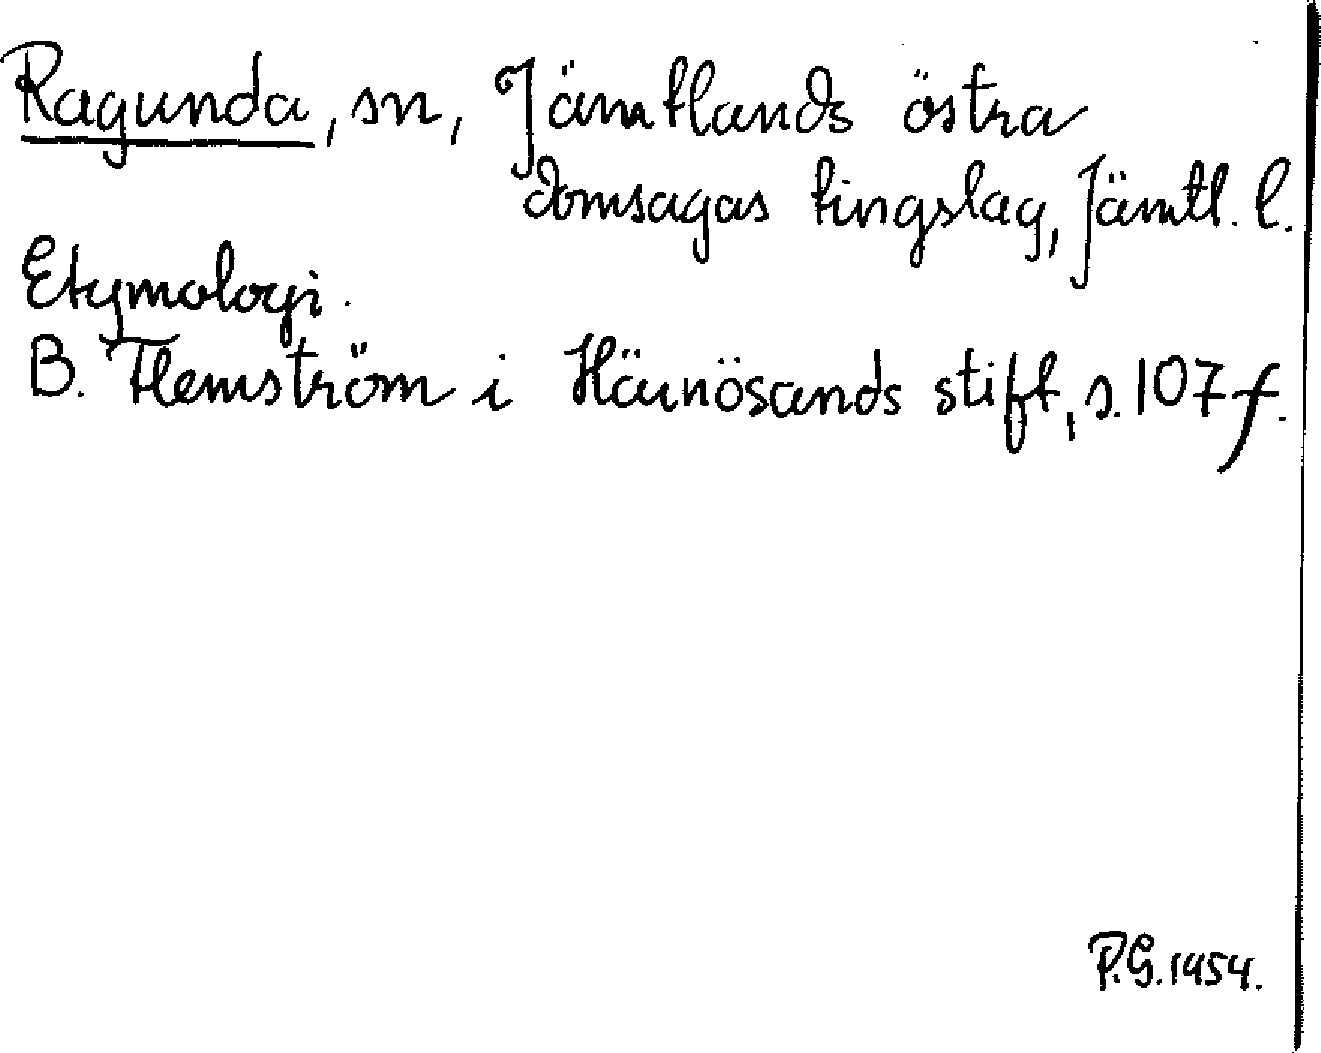 Ragunda, sn, Jämtlands östra
domsagas tingslag, Jämtl. l.
Etymologi.
B. Flemström i Härnösands stift, s. 107 f.
P.G. 1954.